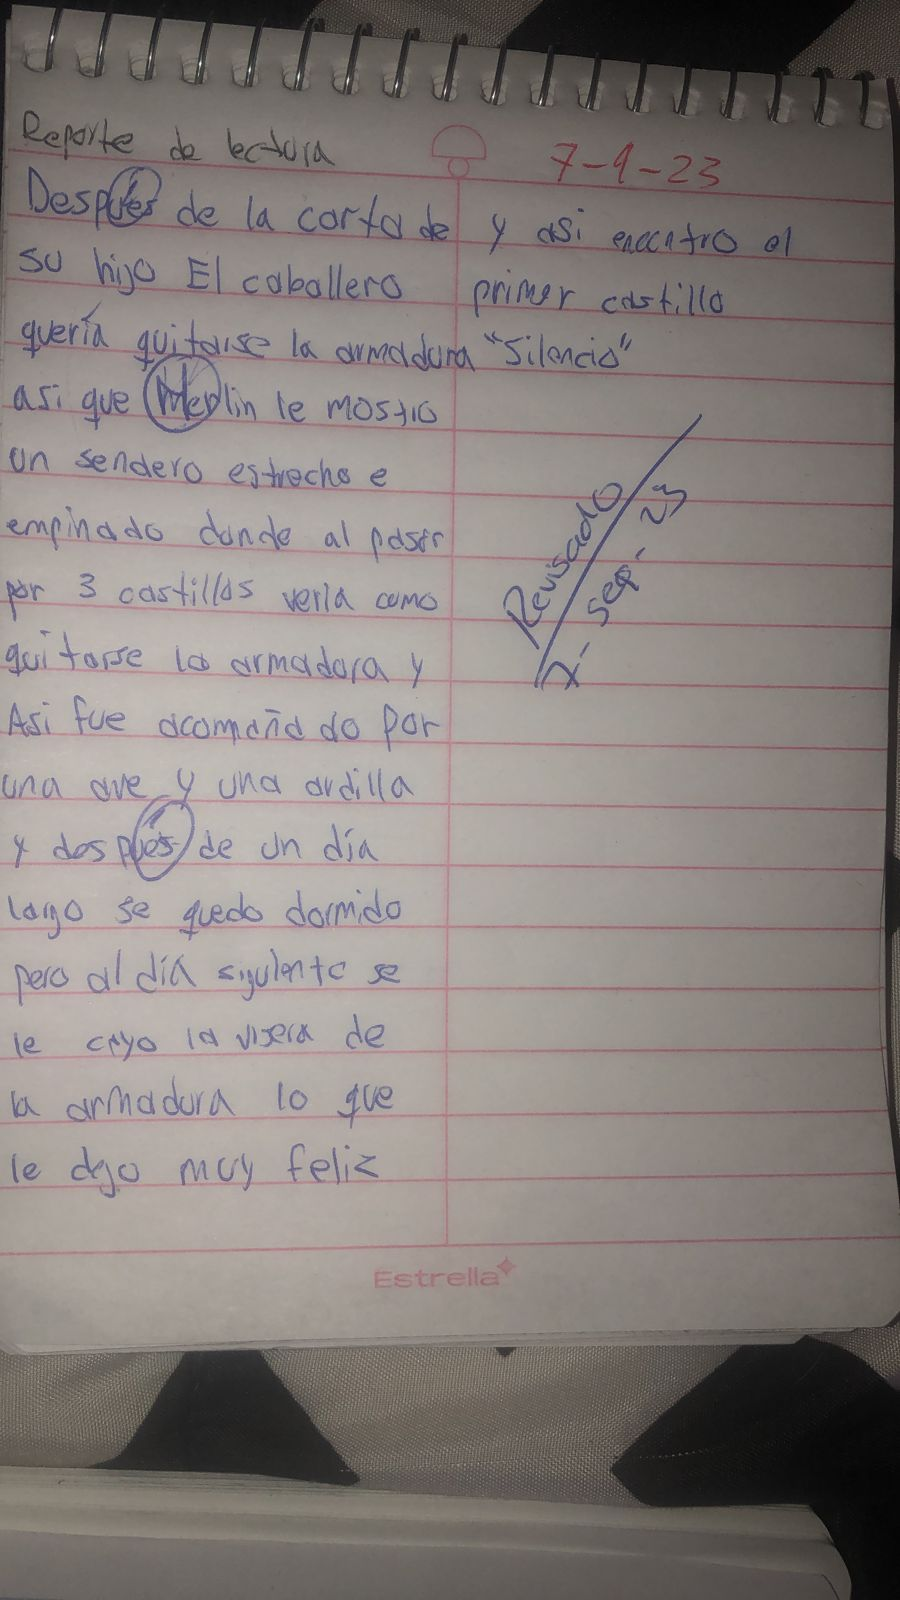 Reporte de lectura
7-9-23
Después de la carta de
su hijo El caballero
quería quitarse la armadura
asi que Merlin le mostro
un sendero estrecho e
empinado donde al pasar
por 3 castillos veria como
quitarse la armadura y
Asi fue acomañado por
una ave y una ardilla
y después de un día
largo se quedo dormido
pero al día siguiente se
le cayo la visera de
la armadura lo que
le dejo muy feliz
y asi encontro el
primer castillo
"Silencio"
Revisado
7-Sep-23
Estrella